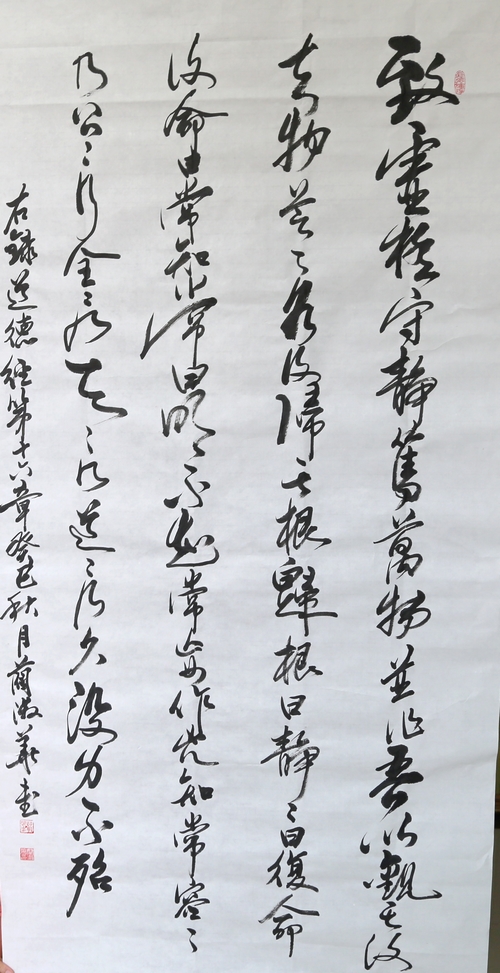 致虛極守靜篤萬物並作吾以觀其復
夫物芸々各復歸其根歸根曰靜々曰復命
復命曰常知常曰明々不知常妄作凶知常容々
乃公々乃全々乃天々乃道々乃久沒身不殆
右錄道德經第十六章癸巳秋月淑華書